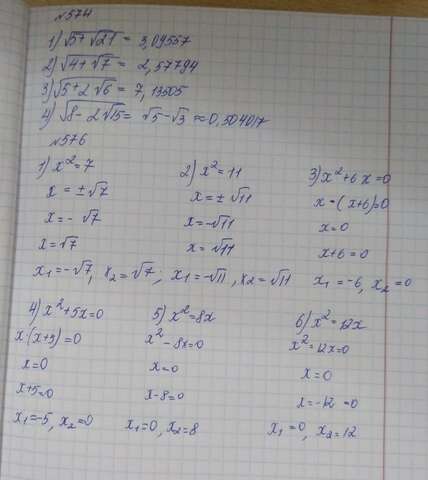 №574
1) √5+√21 = 3,09557
2) √4+√7 = 2,57794
3) √5+2√6 = 7,13505
4) √8-2√15 = √5-√3 ≈ 0,504017
№576
1) x²=7
x = ±√7
x = -√7
x = √7
x₁=-√7, x₂=√7;
2) x²=11
x = ±√11
x = -√11
x = √11
x₁=-√11, x₂=√11
3) x²+6x=0
x=(x+6)=0
x=0
x+6=0
x₁=-6, x₂=0
4) x²+5x=0
x·(x+5)=0
x=0
x+5=0
x₁=-5, x₂=0
5) x²=8x
x²-8x=0
x=0
x-8=0
x₁=0, x₂=8
6) x²=12x
x²=12x=0
x=0
x=-12=0
x₁=0, x₂=12